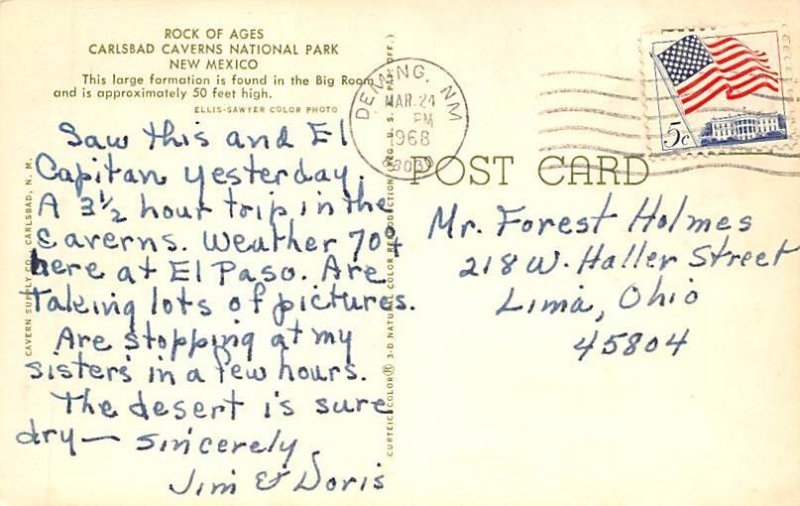 ROCK OF AGES
CARLSBAD CAVERNS NATIONAL PARK
NEW MEXICO
This large formation is found in the Big Room
and is approximately 50 feet high.
ELLIS-SAWYER COLOR PHOTO
Saw this and El
Capitan yesterday.
A 3½ hour trip in the
Caverns. Weather 70+
here at El Paso. Are
taking lots of pictures.
Are stopping at my
sisters in a few hours.
The desert is sure
dry— Sincerely
Jim & Doris
CAVERN SUPPLY CO., CARLSBAD, N. M.
CURTEICHCOLOR® 3-D NATURAL COLOR REPRODUCTION (REG. U. S. A. PAT. OFF.)
DEMING, NM
MAR 24
PM
1968
88030
5c
POST CARD
Mr. Forest Holmes
218 W. Haller Street
Lima, Ohio
45804